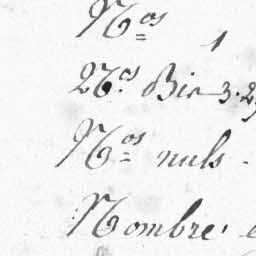 N.os 1
N.os Bis 3. 2
N.os nuls
Nombre